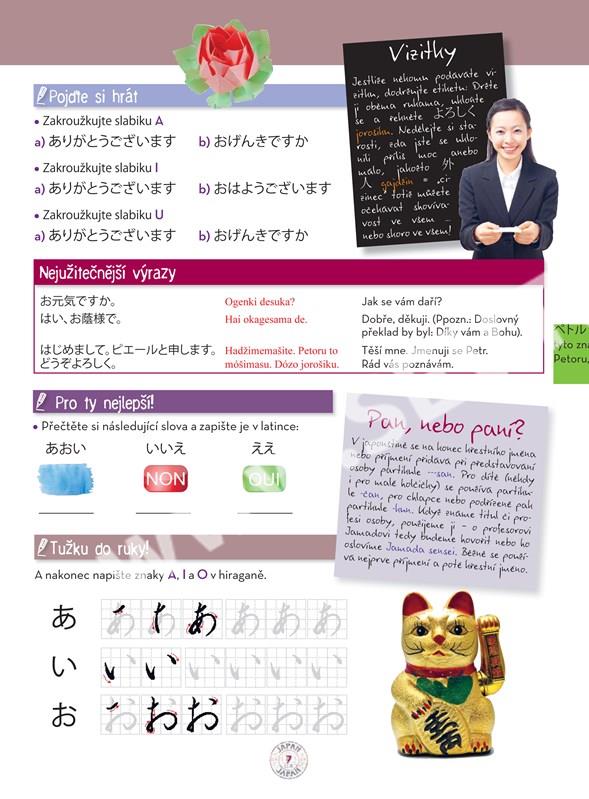 Pojďte si hrát
• Zakroužkujte slabiku A
a) ありがとうございます b) おげんきですか
Zakroužkujte slabiku I
a) ありがとうございます b) おはようございます
• Zakroužkujte slabiku U
a) ありがとうございます b) おげんきですか
Vizitky
Jestliže někomu podáváte vi-
zitku, dodržujte etiketu: Držte
ji oběma rukama, ukloňte
se a řekněte よろしく
jorošiku. Nedělejte si sta-
rosti, zda jste se uklo-
nili příliš moc anebo
málo, jakožto 外
人 gaijdžin = „ci-
zinec“ totiž můžete
očekávat shovíva-
vost ve všem –
nebo skoro ve všem!
Nejužitečnější výrazy
お元気ですか。 Ogenki desuka? Jak se vám daří?
はい、お蔭様で。 Hai okagesama de. Dobře, děkuji. (Ppozn.: Doslovný
překlad by byl: Díky vám a Bohu).
はじめまして。ピエールと申します。 Hadžimemašite. Petoru to Těší mne. Jmenuji se Petr.
どうぞよろしく。 móšimasu. Dózo jorošiku. Rád vás poznávám.
ペトル
tyto zna
Petoru,
Pro ty nejlepší!
• Přečtěte si následující slova a zapište je v latince:
あおい いいえ ええ
NON OUI
Pan, nebo paní?
V japonštině se na konec křestního jména
nebo příjmení přidává při představování
osoby partikule ---san. Pro dítě (někdy
i pro malé holčičky) se používá partiku-
le -čan, pro chlapce nebo podřízené pak
partikule -kun. Když známe titul či pro-
fesi osoby, použijeme ji – o profesorovi
Jamadovi tedy budeme hovořit nebo ho
oslovíme Jamada sensei. Běžně se použí-
vá nejprve příjmení a poté křestní jméno.
Tužku do ruky!
A nakonec napište znaky A, I a O v hiraganě.
あ あ あ あ あ あ
い い い い い い い
お お お お お お お
JAPAN
7
JAPAN